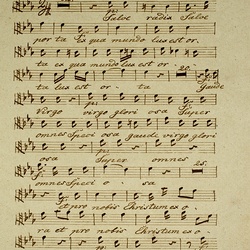 Salve radix Salve
porta Ex qua mundo lux est or
ta ex qua mundo lux est or
ta lux est or ta Gaude
Virgo virgo glori osa Super
omnes Speci osa gaude virgo glori
osa Super omnes
omnes Speci o sa
et pro nobis Christum exo
ra et pro nobis Christum exo